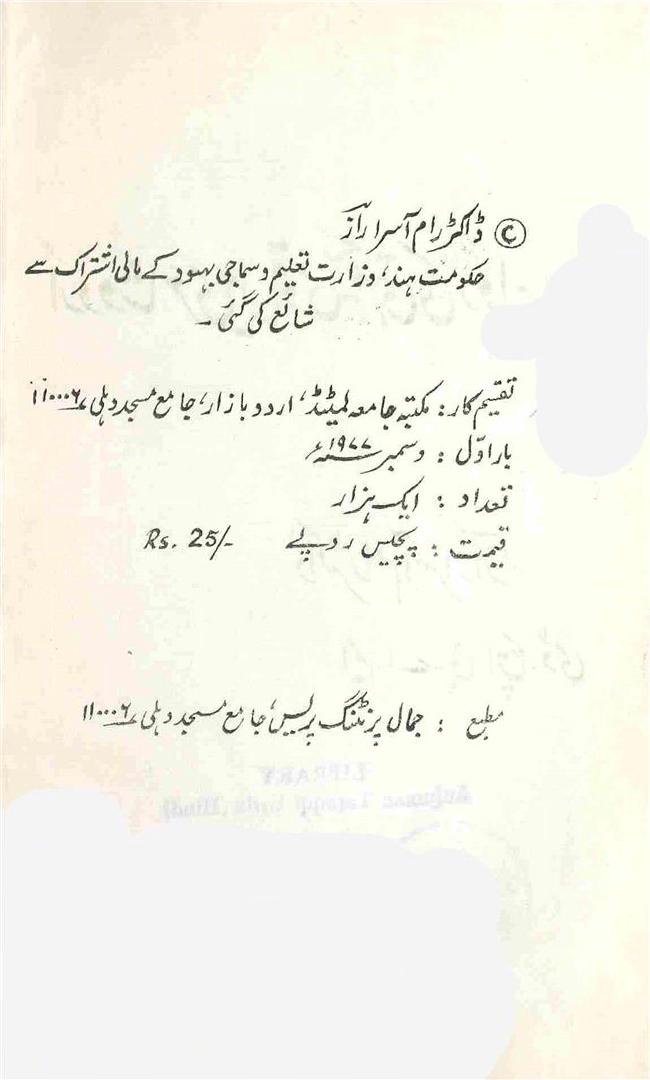 © ڈاکٹر رام آسرا رازؔ
حکومت ہند، وزارت تعلیم و سماجی بہبود کے مالی اشتراک سے
شائع کی گئی ۔
تقسیم کار : مکتبہ جامعہ لمیٹڈ، اردو بازار، جامع مسجد دہلی ۱۱۰۰۰۶
بار اوّل : دسمبر ۱۹۷۷ء
تعداد : ایک ہزار
قیمت : پچیس روپے Rs. 25/-
مطبع : جمال پرنٹنگ پریس، جامع مسجد دہلی ۱۱۰۰۰۶
LIBRARY
Anjuman Taraqqi Urdu (Hind)